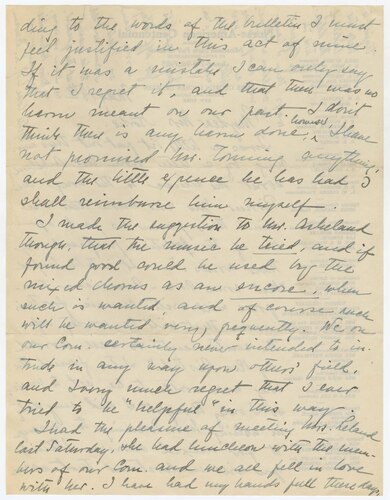 ding to the words of the bulletin I must
feel justified in this act of mine.
If it was a mistake I can only say
that I regret it, and that there was no
harm meant on our part. I don't
think there is any harm done, however, I have
not promised Mr. anything,
and the little expence he has had I
shall reimburse him myself.
I made the suggestion to Mr.
though, that the music be tried, and if
found good could be used by the
mixed chorus as an encore, when
such is wanted, and of course such
will be wanted very frequently. We on
our Com. certainly never intended to in-
trude in any way upon others' field,
and I very much regret that I ever
tried to be "helpful" in this way.
I had the pleasure of meeting Mrs.
last Saturday. She had luncheon with the mem-
bers of our Com. and we all fell in love
with her. I have had my hands full these days